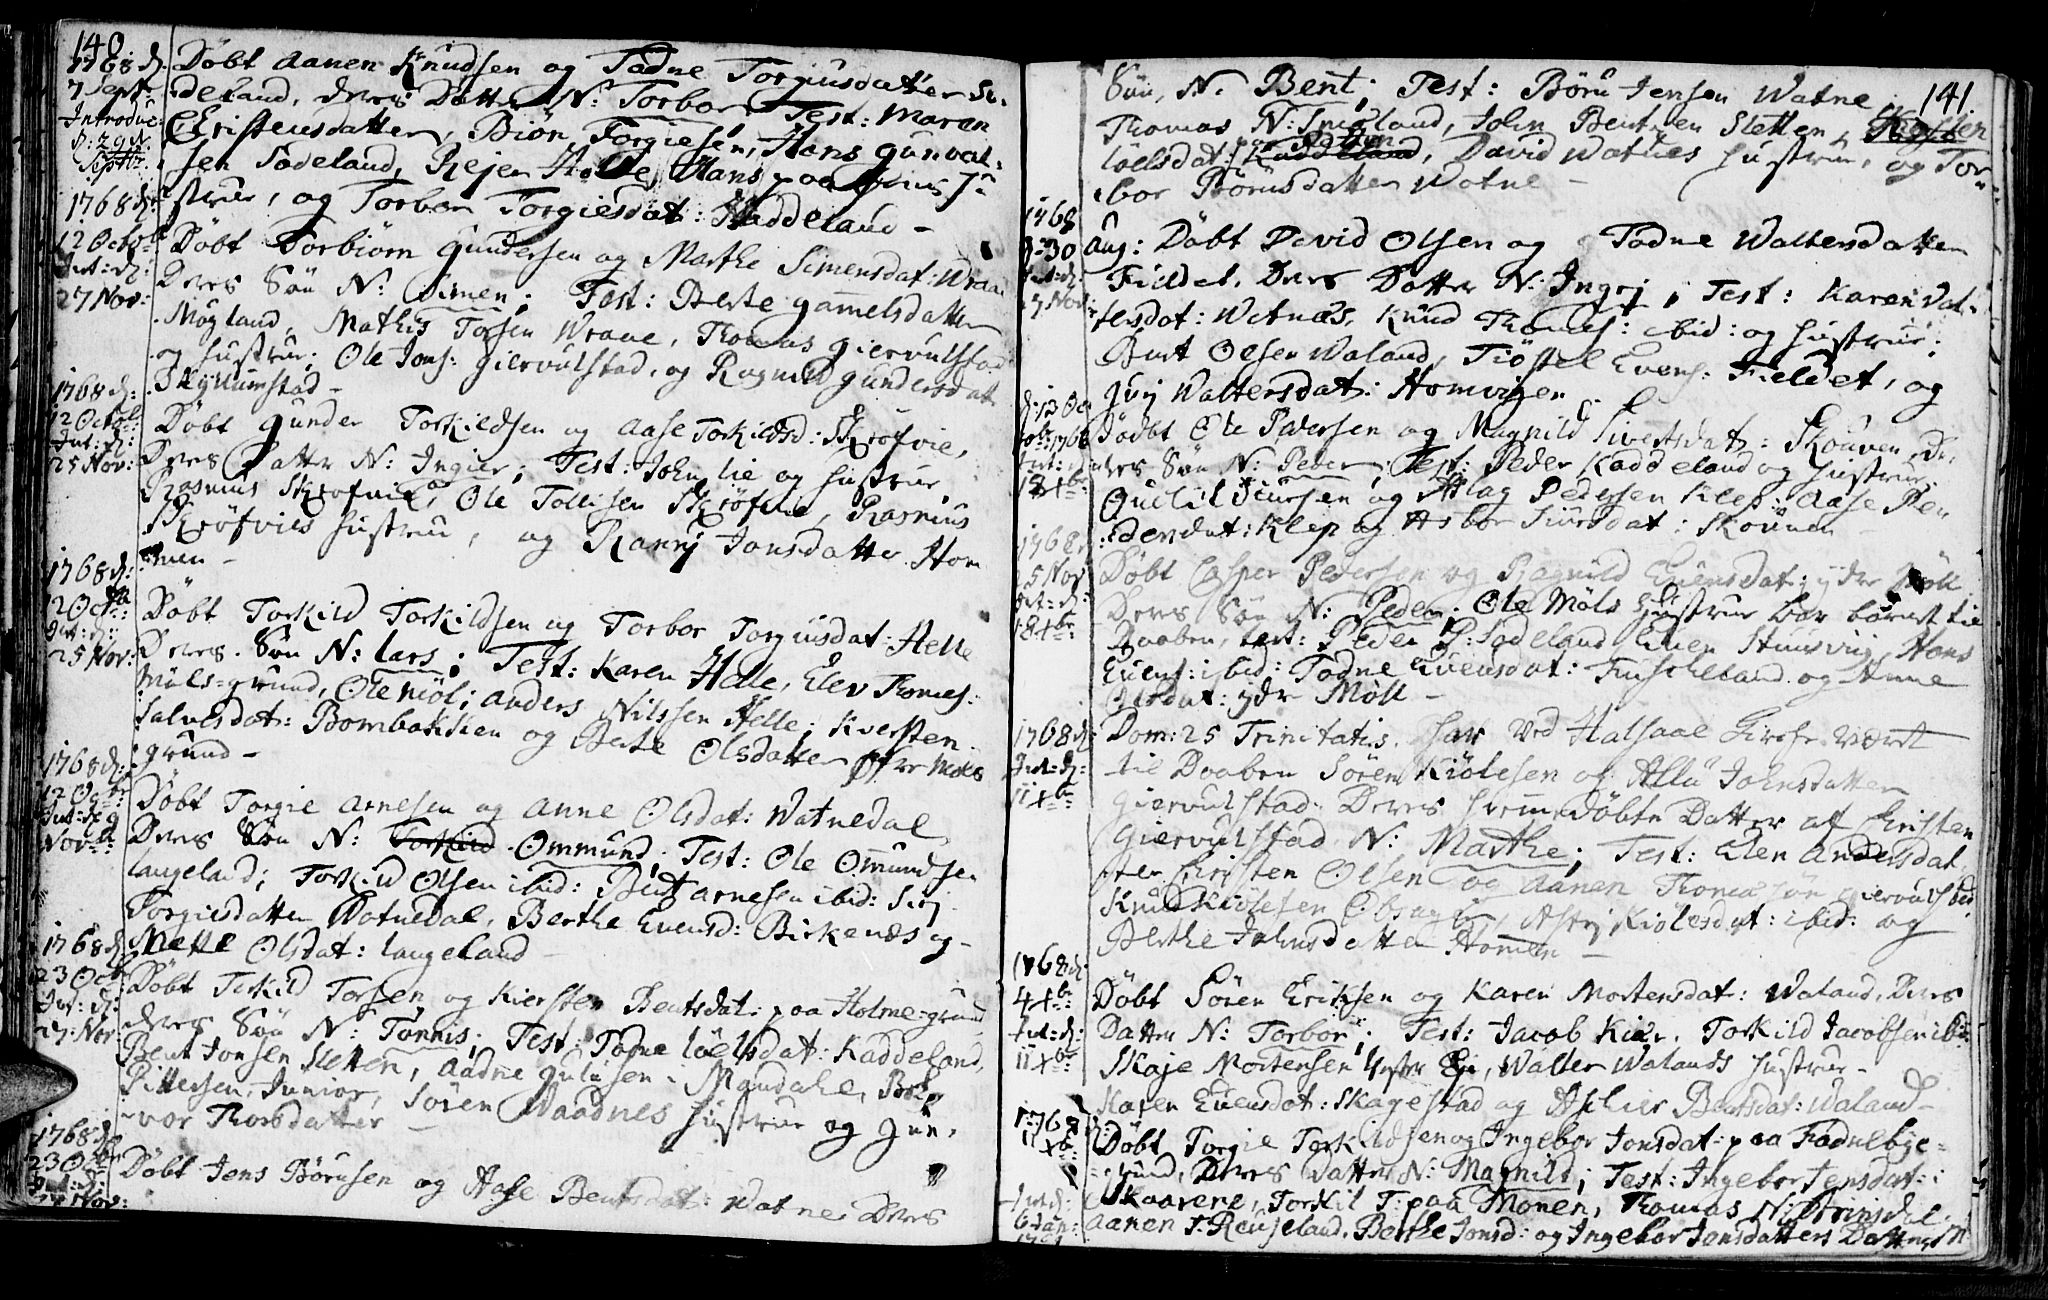 140
1768 d.
7 Sept:
Introduc:
d: 29de
Septbr.
Døbt Aanen Knudsen og Todne Torgiusdatter So-
deland, deres Datter N: Torbor, Test: Maren
Christensdatter, Biøn Torgiesen, Hans Gunval-
sen Sodeland, Rejer Holte, Hans paa Hu-
strue, og Torbor Torgiesdat: Haddeland -
1768 d:
12 Octob:
Int: d:
27 Nov:
Døbt Torbiørn Gundersen og Marthe Simensdat: Wraae
Deres Søn N: Simen; Test: Berte Gamelsdatter
Møgland, Mathis Torsen Wraae, Thomas Giervulstad
og Hustrue; Ole Jons: Giervulstad, og Ragnild Gundersdat
Skyllumstad -
1768 d:
12 Octob:
Int: d:
25 Nov:
Døbt Gunder Torkildsen og Aase Torkildsd: Skrøfvie,
Deres Datter N: Ingier; Test: John lie og Hustrue,
Rasmus Skrøfvie, Ole Tollisen Skrøfvie, Rasmus
Skrøfvies Hustrue, og Ranni Jonsdatter Hom
men -
1768 d:
12 Oct:
Int: d:
25 Nov:
Døbt Torkild Torkildsen og Torbor Torgiusdat: Helle
Deres Søn N: Lars; Test: Karen Helle, Elev Thomes:
Møls-grund, Ole Møl; Anders Nilssen Helle; Kiersten
Salvesdat: Bombakskien og Berte Olsdatter Møls
grund -
1768 d:
12 Octbr
Int: d: 9
Novbr
Døbt Torgie Arnesen og Anne Olsdat: Watnedal
Deres Søn N: Torkild Ommund; Test: Ole Omundsen
Langeland; Torkild Olsen ibid: Bent Arnesen ibid: Siri
Torgiesdatter Watnedal, Berthe Evensd: Birkenæs og
Mette Olsdat: Langeland -
1768 d:
23 Octbr
Int: d:
27 Nov:
Døbt Terkild Torsen og Kiersten Bentsdat: paa Holme-grund
Deres Søn N: Tønnis; Test: Todne Loelsdat: Kaddeland,
Bent Jonsen Sletten, Aadne Gulusen i Mandahl,
Pittersen Junior, Søren Vaadnes Hustrue og Gun-
vor Thorsdatter -
1768 d:
23 Octbr
Int: d:
Nov:
Døbt Jens Børusen og Aase Bentsdat: Watne, Deres
141.
Søn, N. Bent; Test: Børu Jensen Watne
Thomas N: Trigland, John Bentsen Sletten, Kiersten
Loelsdat: Kaddeland, David Watnes Hustrue, og Tor-
bor Børusdatter Watne -
1768
d: 30
Int: d:
27 Nov:
Aug: Døbt David Olsen og Todne Woltersdatter
Fieldet, Deres Datter N: Ingri; Test: Karen Wol-
tersdat: Watnes, Knud Thomes: ibid: og Hustrue;
Bent Olsen Waland, Tiøstel Evens: Fieldet, og
Guri Woltersdat: Homvigen
d: 12 Oc
tobr 1768
Int: d:
18 Xbr
Døbt Ole Pedersen og Magnild Sivertsdat: Skouven, De-
res Søn N: Peder; Test: Peder Kaddeland og Hustrue,
Ouelil Siursen og Aslag Pedersen Klep; Aase Pe-
dersdat: Klep og Asbor Siursdat: Skouven
1768 d
25 Nov
Int: d:
18 Xbr:
Døbt Casper Pedersen og Ragnild Evensdat: ydre Møll
Deres Søn N: Peder, Ole Møls Hustrue bar barnet til
Daaben, Test: Peder P: Sodeland, Even Stuusvig, Hans
Evens: ibid: Todne Evensdat: Fuskeland og Anne
Olsdat: ydre Møll -
1768 d:
Int: d:
11 Xbr
Dom: 25 Trinitatis. Har ved Halsaae Kirche været
til Daaben Søren Kiølesen og Allu Johnsdatter
Giervulstad. Deres hiemedøbte Datter af Christen
Giervulstad. N: Marthe; Test: Elen Andersdat
ster Christen Olsen og Aanen Thomasøn Giervulstad,
Knud Kiølesen Obsager, Astri Kiølesdat: ibid: og
Berthe Johnsdatter Homen -
1768 d:
4 Xbr:
Int: d:
11 Xbr
Døbt Søren Eriksen og Karen Mortensdat: Waland, Deres
Datter N: Torbor; Test: Jacob Kier, Torkild Jacobsen ibid:
Skaje Mortensen Ystre Ej, Walter Walands Hustrue -
Karen Evensdat: Skagestad og Aschier Bentsdat: Waland -
1768 d:
11 Xbr
Int: d:
6 Jan:
Døbt Torgie Torkildsen og Ingebor Jonsdat: paa Fodnebye-
grund, Deres Datter N: Magnild; Test: Ingebor Jensdat: i
Skaarene, Torkil T: paa Monen, Thomas N: Arinsdal,
Aanen T: Reuseland, Berthe Jonsd: og Ingebor Jonsdatters Datter M